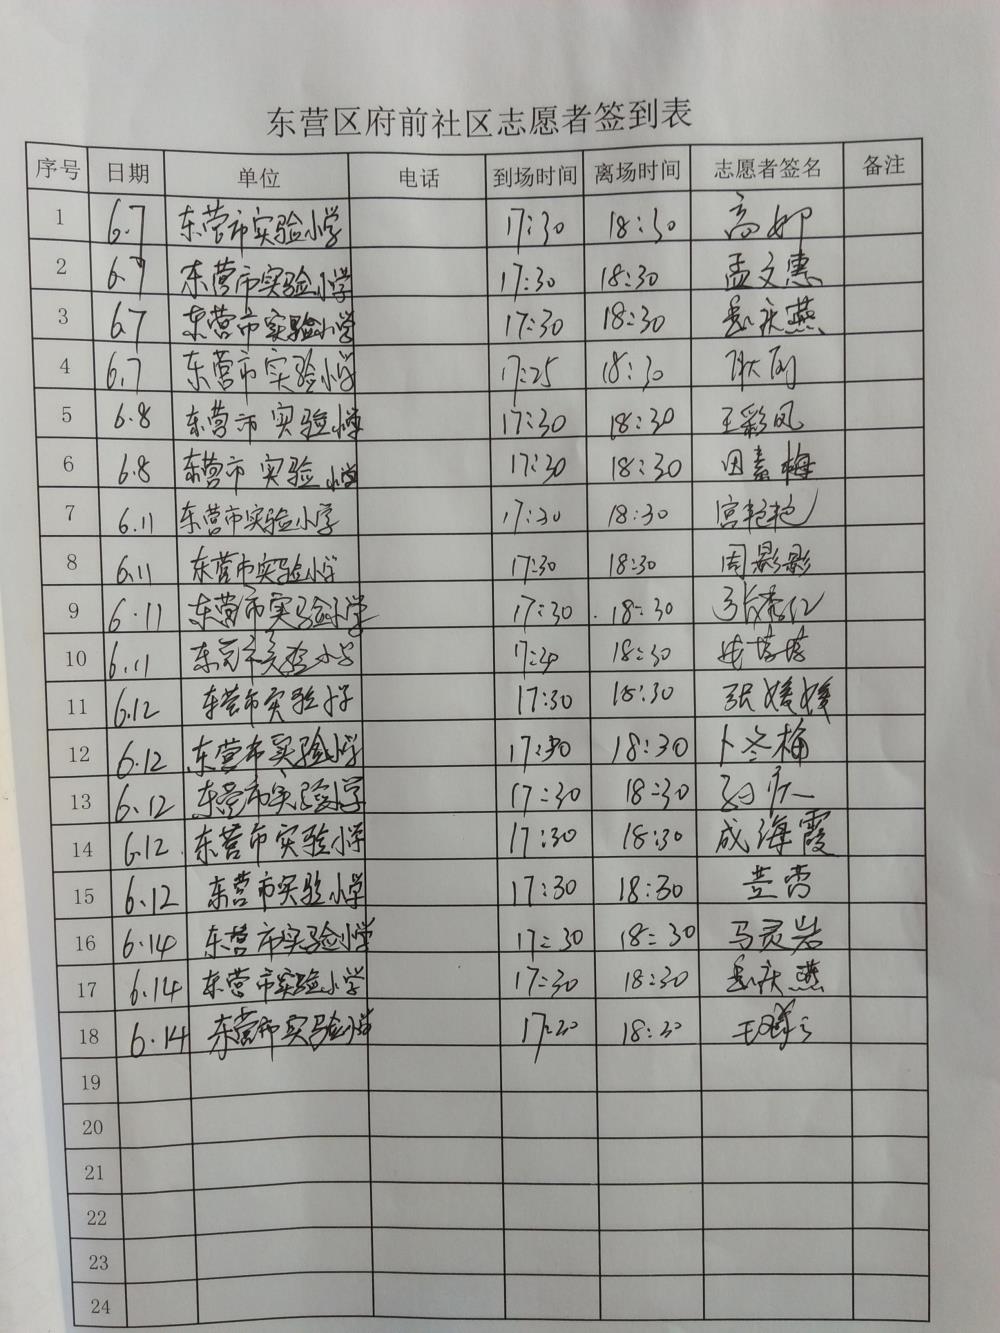 东营区府前社区志愿者签到表
序号 日期 单位 电话 到场时间 离场时间 志愿者签名 备注
1 6.7 东营市实验小学 17:30 18:30 高
2 6.7 东营市实验小学 17:30 18:30 孟文惠
3 6.7 东营市实验小学 17:30 18:30 庆燕
4 6.7 东营市实验小学 17:25 18:30
5 6.8 东营市实验小学 17:30 18:30 王彩凤
6 6.8 东营市实验小学 17:30 18:30 田素梅
7 6.11 东营市实验小学 17:30 18:30 宫艳艳
8 6.11 东营市实验小学 17:30 18:30 周影影
9 6.11 东营市实验小学 17:30 18:30 张
10 6.11 东营市实验小学 18:30
11 6.12 东营市实验小学 17:30 18:30 张媛媛
12 6.12 东营市实验小学 17:30 18:30 卜冬梅
13 6.12 东营市实验小学 17:30 18:30
14 6.12 东营市实验小学 17:30 18:30 成海霞
15 6.12 东营市实验小学 17:30 18:30
16 6.14 东营市实验小学 17:30 18:30 马灵岩
17 6.14 东营市实验小学 17:30 18:30 庆燕
18 6.14 东营市实验小学 王
19
20
21
22
23
24